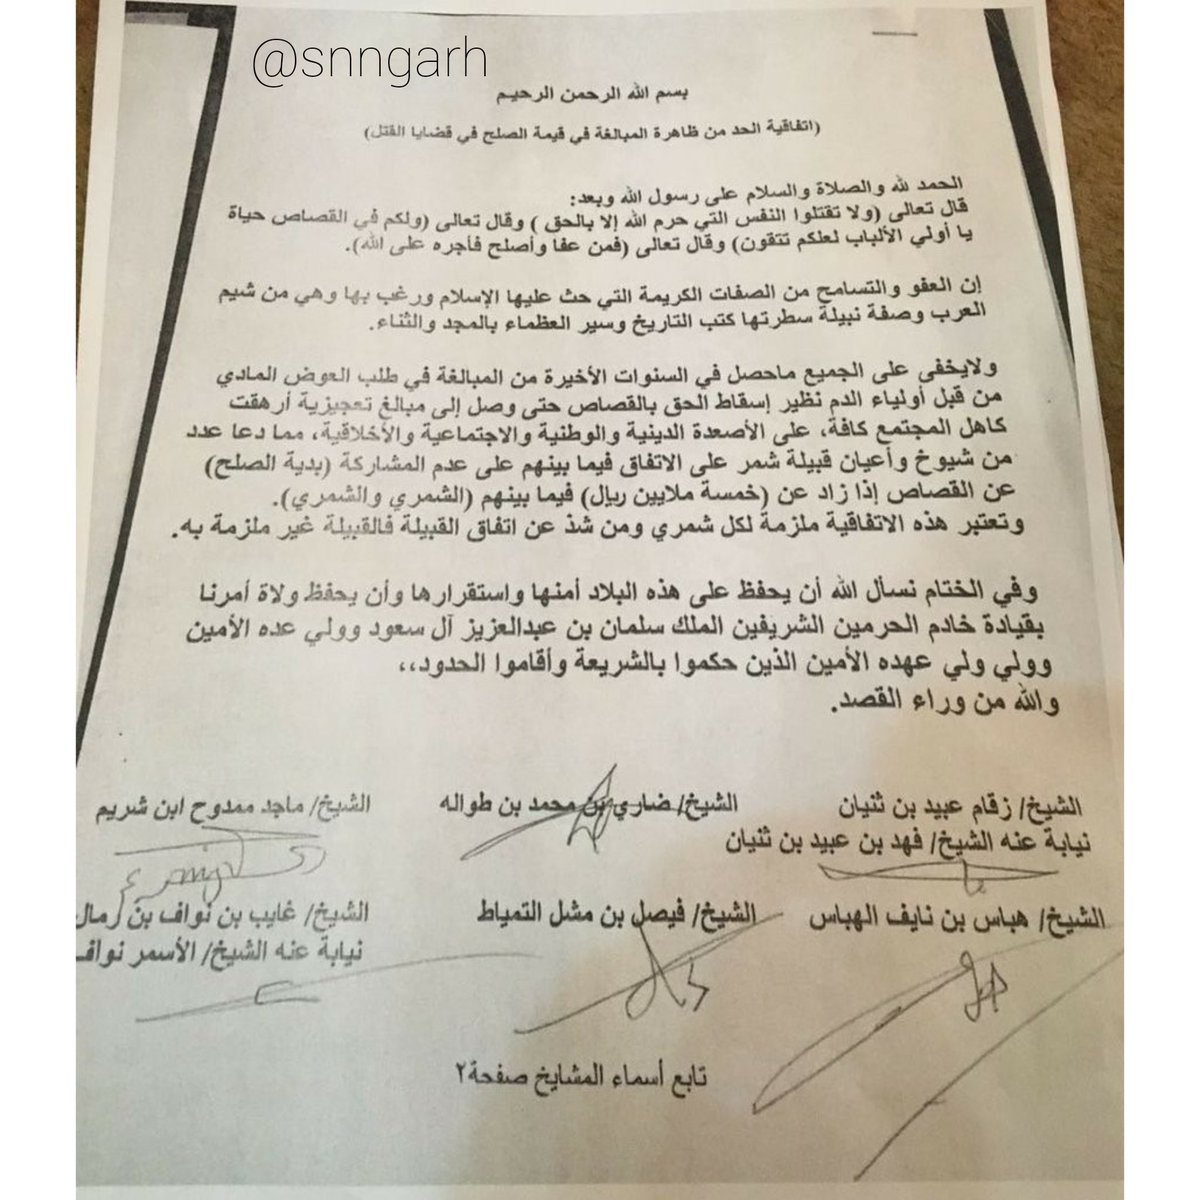 @snngarh
بسم الله الرحمن الرحيم
(اتفاقية الحد من ظاهرة المبالغة في قيمة الصلح في قضايا القتل)
الحمد لله والصلاة والسلام على رسول الله وبعد:
قال تعالى (ولا تقتلوا النفس التي حرم الله إلا بالحق ) وقال تعالى (ولكم في القصاص حياة
يا أولي الألباب لعلكم تتقون) وقال تعالى (فمن عفا وأصلح فأجره على الله).
إن العفو والتسامح من الصفات الكريمة التي حث عليها الإسلام ورغب بها وهي من شيم
العرب وصفة نبيلة سطرتها كتب التاريخ وسير العظماء بالمجد والثناء.
ولايخفى على الجميع ماحصل في السنوات الأخيرة من المبالغة في طلب العوض المادي
من قبل أولياء الدم نظير إسقاط الحق بالقصاص حتى وصل إلى مبالغ تعجيزية أرهقت
كاهل المجتمع كافة، على الأصعدة الدينية والوطنية والاجتماعية والأخلاقية، مما دعا عدد
من شيوخ وأعيان قبيلة شمر على الاتفاق فيما بينهم على عدم المشاركة (بدية الصلح)
عن القصاص إذا زاد عن (خمسة ملايين ريال) فيما بينهم (الشمري والشمري).
وتعتبر هذه الاتفاقية ملزمة لكل شمري ومن شذ عن اتفاق القبيلة فالقبيلة غير ملزمة به.
وفي الختام نسأل الله أن يحفظ على هذه البلاد أمنها واستقرارها وأن يحفظ ولاة أمرنا
بقيادة خادم الحرمين الشريفين الملك سلمان بن عبدالعزيز آل سعود وولي عده الأمين
وولي ولي عهده الأمين الذين حكموا بالشريعة وأقاموا الحدود،،
والله من وراء القصد.
الشيخ/ زقام عبيد بن ثنيان
نيابة عنه الشيخ/ فهد بن عبيد بن ثنيان
الشيخ/ ضاري بن محمد بن طواله
الشيخ/ ماجد ممدوح ابن شريم
الشيخ/ هباس بن نايف الهباس
الشيخ/ فيصل بن مشل التمياط
الشيخ/ غايب بن نواف بن رمال
نيابة عنه الشيخ/ الأسمر نواف
تابع أسماء المشايخ صفحة٢